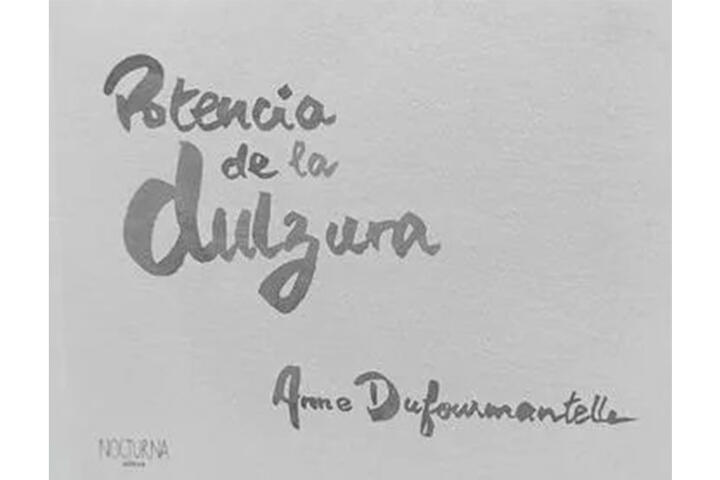 Potencia
de la
dulzura
Anne Dufourmantelle
NOCTURNA
editora